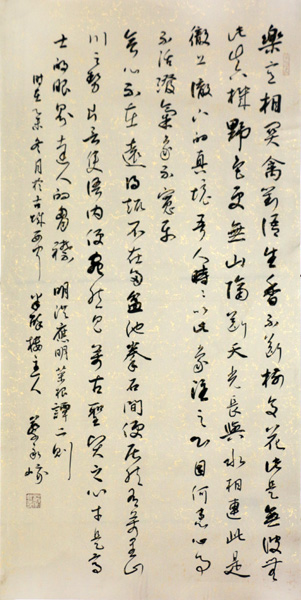 樂意相關禽對語生香不斷樹交花此是無彼無
此真機野色更無山隔斷天光長與水相連此是
徹上徹下的真境吾人時時以此景象注之心目何患心思
不活潑氣象不寬平
會心不在遠得趣不在多盆池拳石間便居然有萬里山
川之勢片言隻語內便宛然見萬古聖賢之心才是高
士的眼界達人的胸襟 明洪應明菜根譚二則
時在冬月於古城西 樓主人